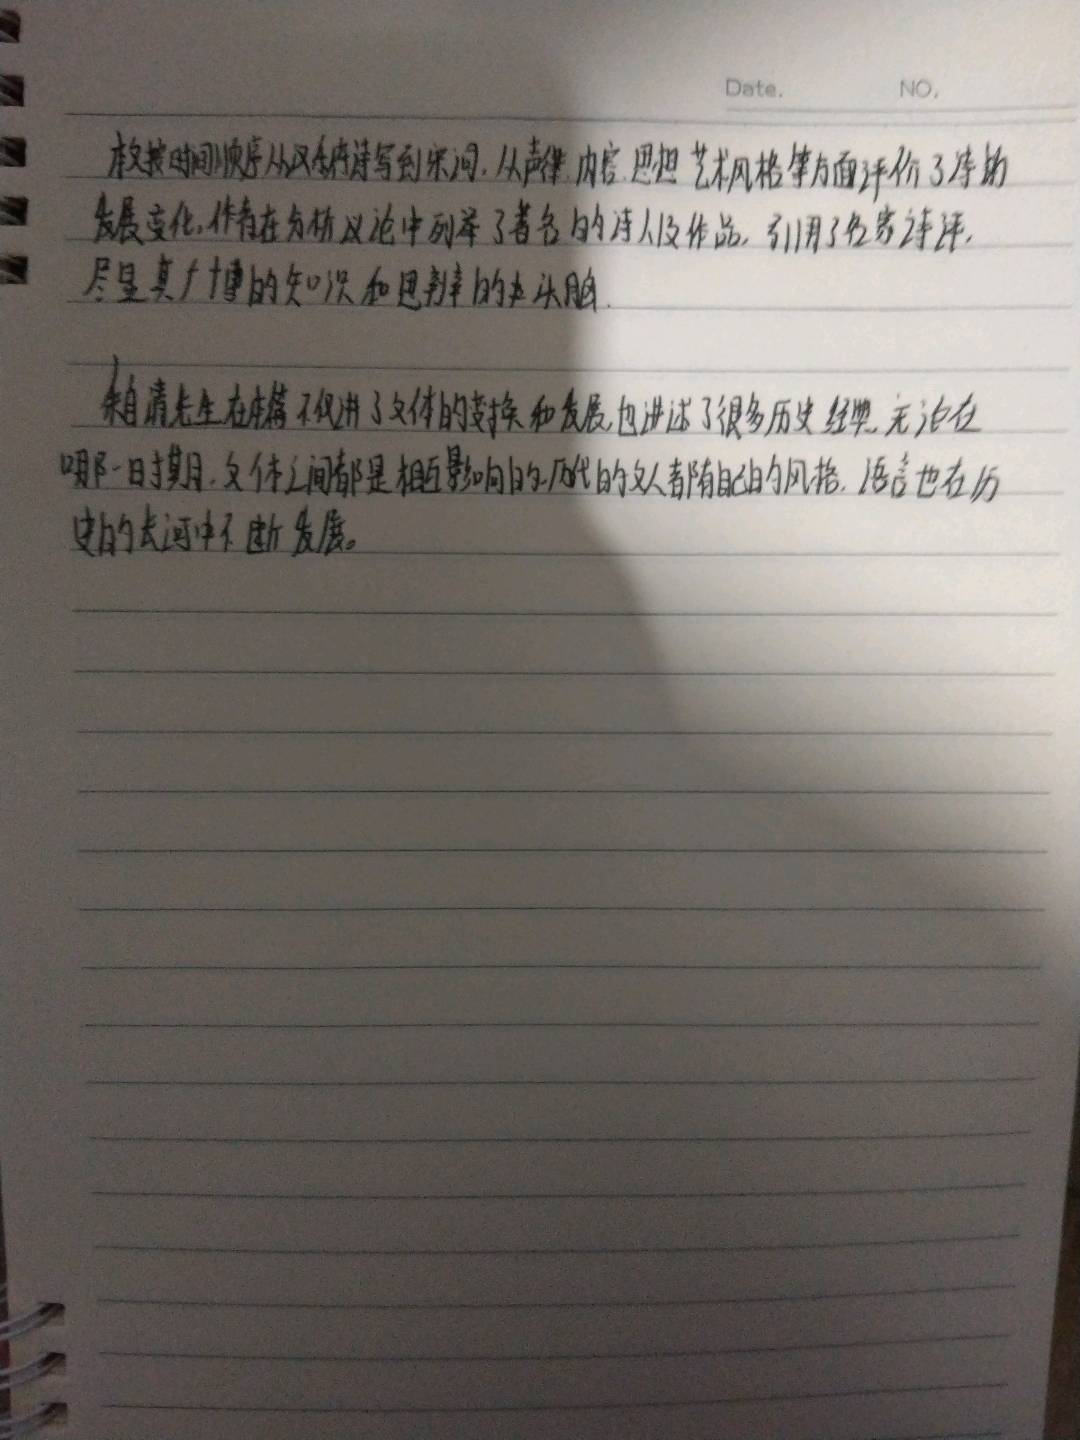 Date. NO.
本文按时间顺序从汉乐府诗写到宋词,从声律 内容 思想 艺术风格等方面评价了诗的
发展变化,作者在分析议论中列举了著名的诗人及作品,引用了名家诗评,
尽显其广博的知识和思辨的头脑.
朱自清先生在本篇不仅讲了文体的变换和发展,也讲述了很多历史经典,无论在
哪一时期,文体之间都是相互影响的,历代的文人都有自己的风格,语言也在历
史的长河中不断发展。